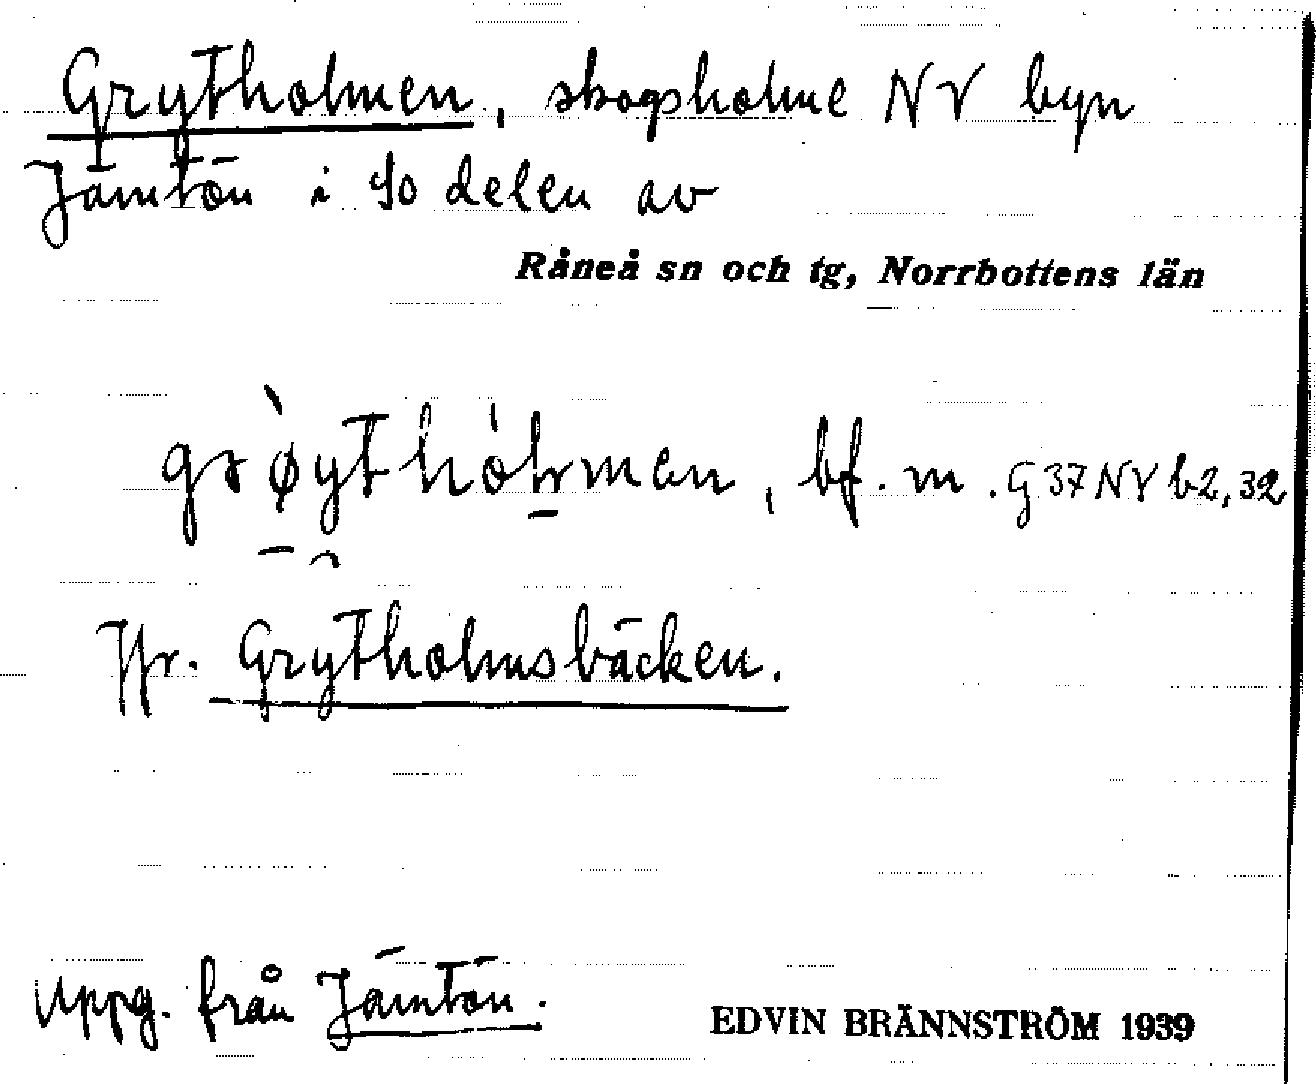 Grytholmen, skogsholme NV byn
Jämtön i SO delen av
Råneå sn och tg, Norrbottens län
bf. m. G 37 NV b2, 32
Jfr. Grytholmsbäcken.
Uppg. från Jämtön.
EDVIN BRÄNNSTRÖM 1939